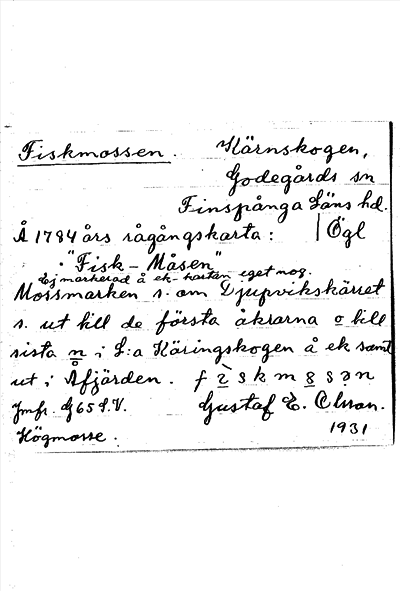 Fiskmossen. Kärnskogen,
Godegårds sn
Finspånga Läns hd.
Å 1784 års rågångskarta: | Ögl
"Fisk-Måsen"
Ej markerad å ek-kartan eget nog.
Mossmarken s. om Djupvikskärret
s. ut till de första åkrarna o till
sista n i L:a Käringskogen å ek samt
ut i Åfjärden.
Jmfr. G65 S.V. Gustaf E. Olsson.
Högmosse. 1931